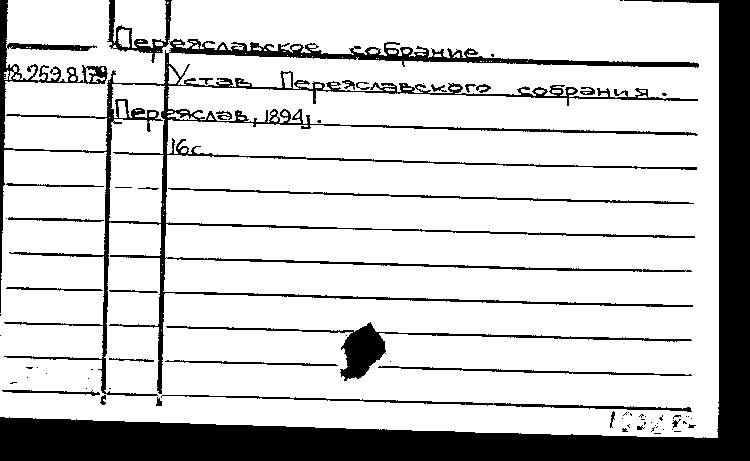 Переяславское собрание.
18.259.8.179 Устав Переяславского собрания.
[Переяслав, 1894].
16с.